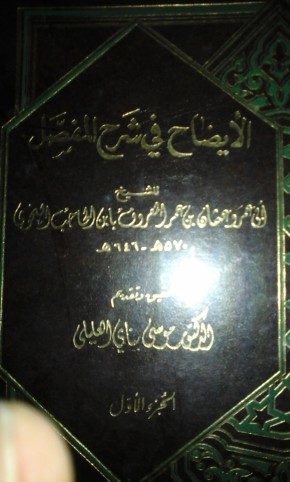 الإيضاح في شرح المفصل
للشيخ
أبي عمرو عثمان بن عمر المعروف بابن الحاجب النحوي
٥٧٠هـ - ٦٤٦هـ
وتقديم
الدكتور موسى بناي العليلي
الجزء الأول